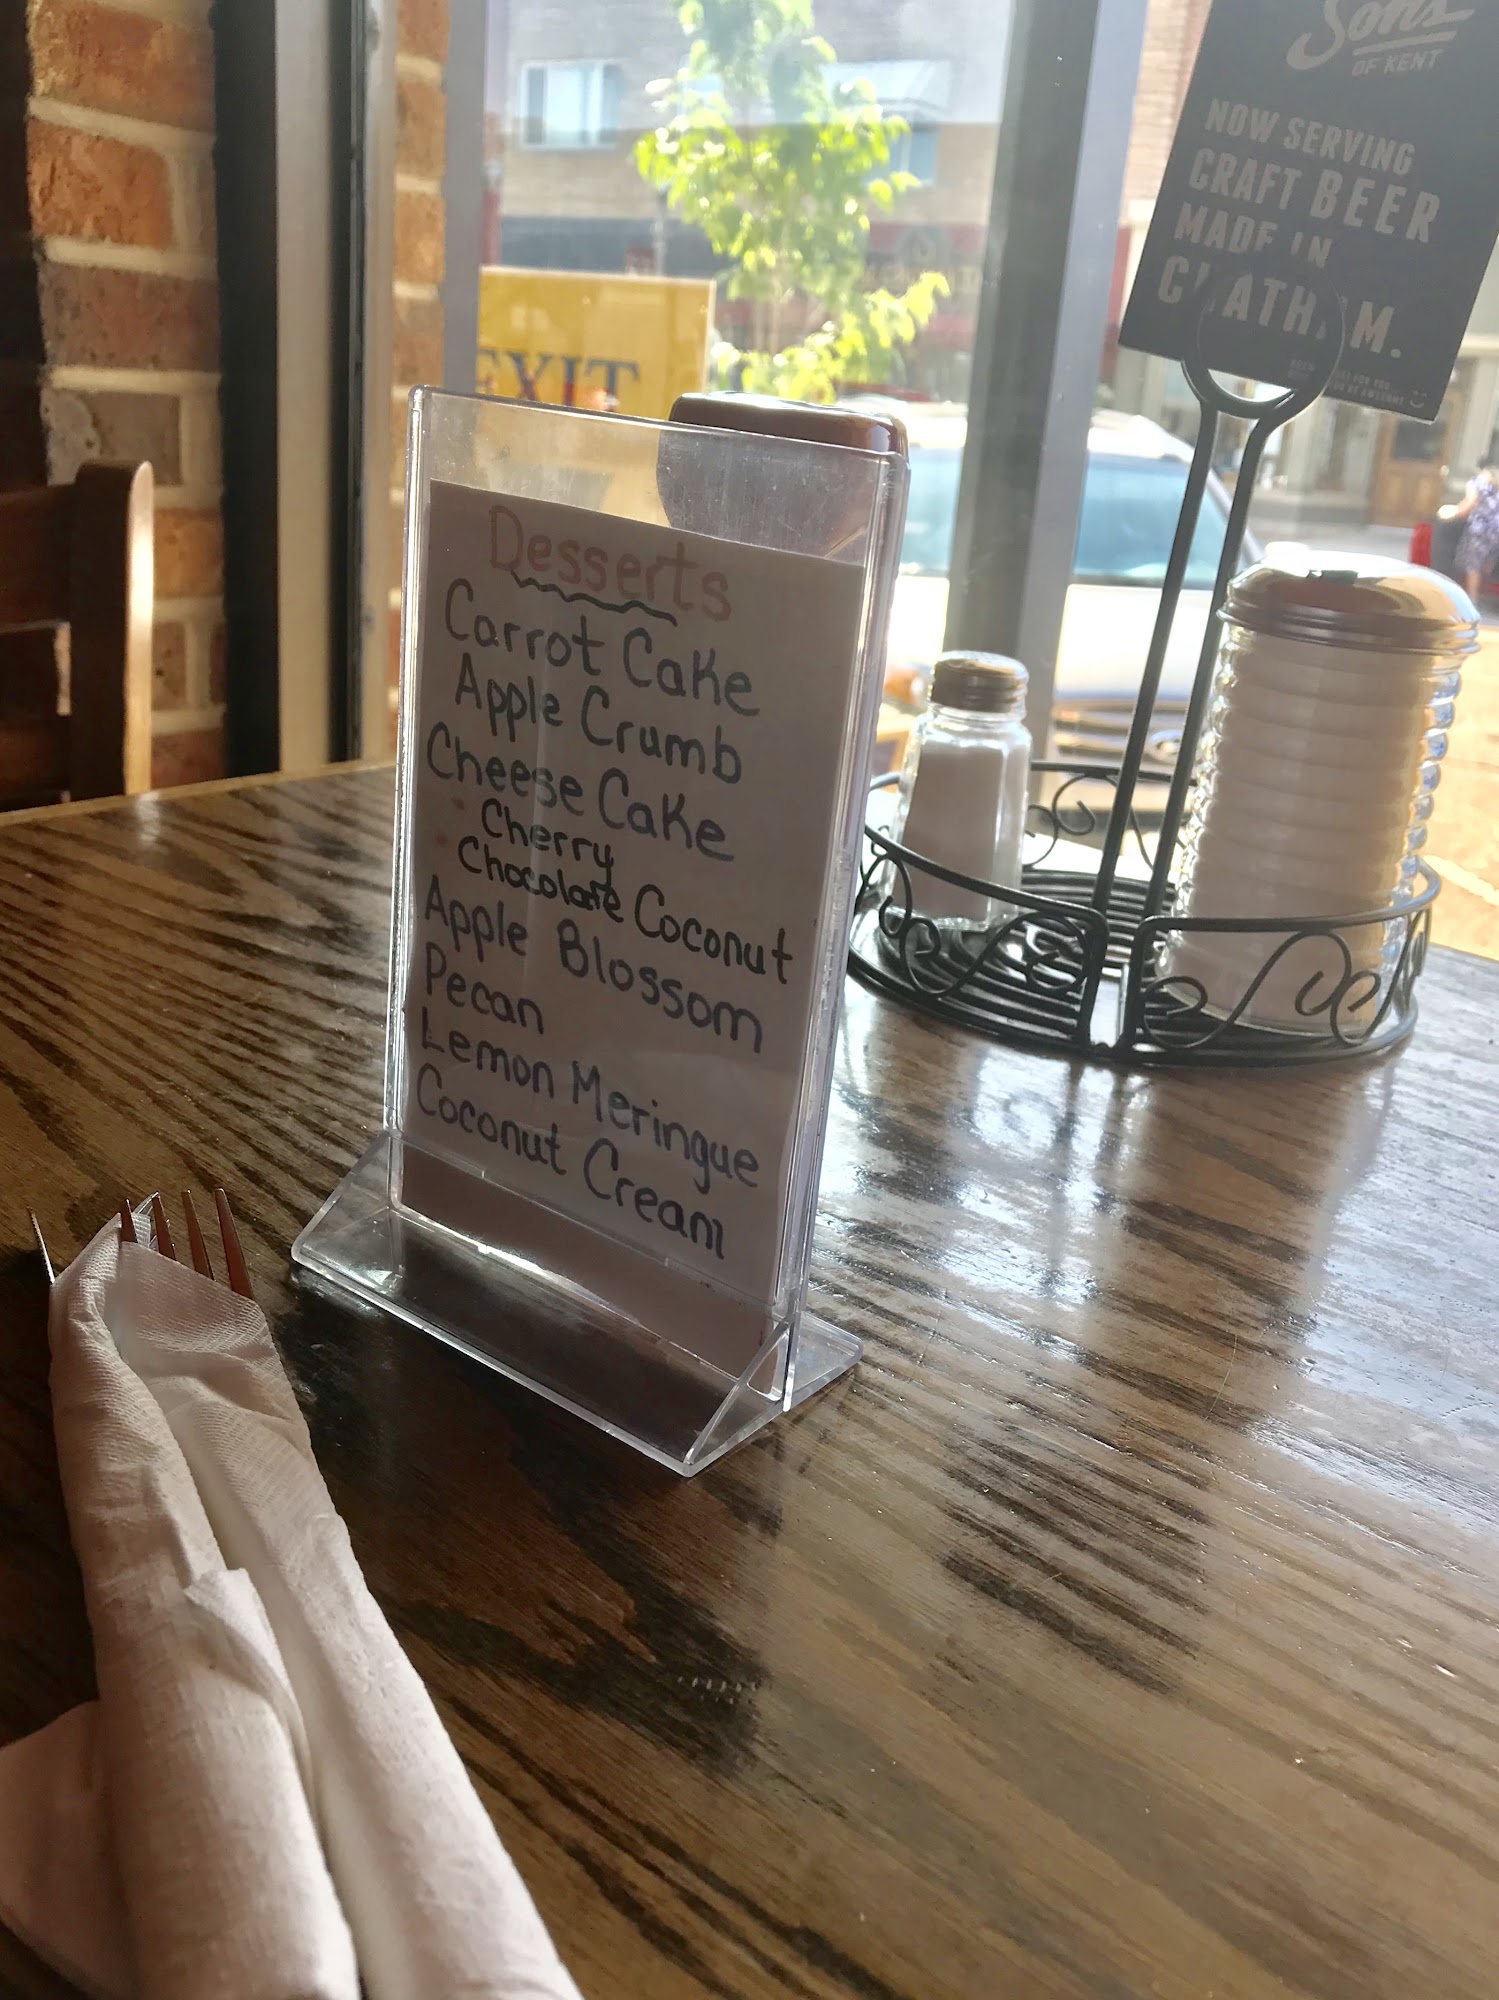 Desserts
Carrot Cake
Apple Crumb
Cheese Cake
Cherry
Chocolate Coconut
Apple Blossom
Pecan
Lemon Meringue
Coconut Cream
EXIT
Sons
OF KENT
NOW SERVING
CRAFT BEER
MADE IN
CHATHAM.